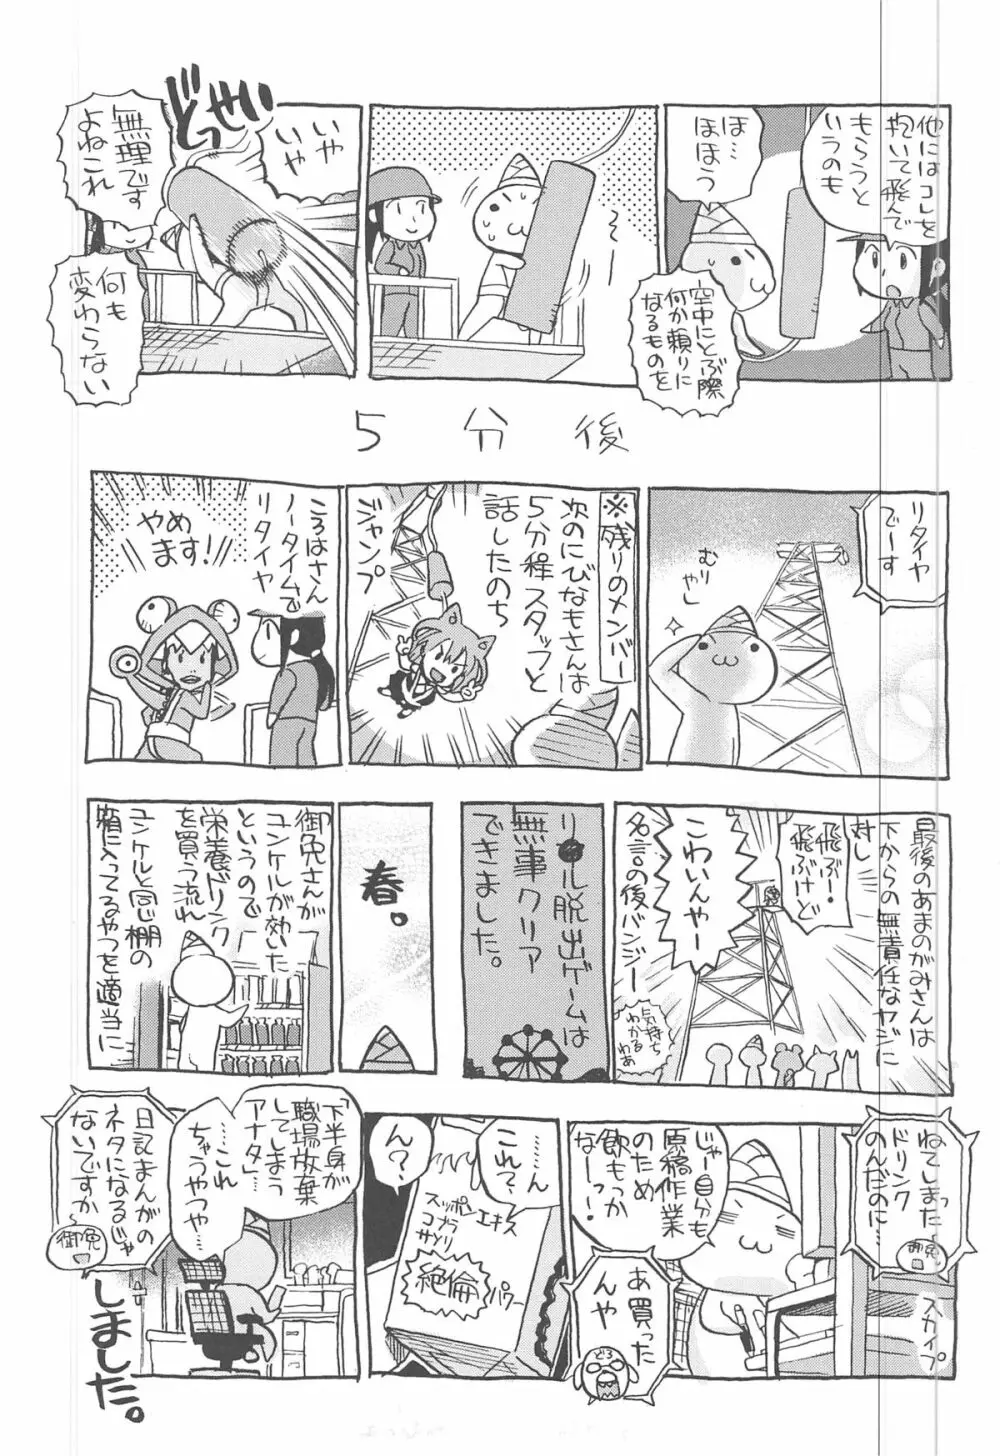 他にはコレを
抱いて飛んで
もらうと
いうのも
ほ…
ほほう
空中にとぶ際
何か頼りに
なるものを
いや
いや
どっせい
無理です
よねこれ
何も
変わらない
5分後
リタイヤ
でーす
むり
やし
※残りのメンバー
次のにびなもさんは
5分程スタッフと
話したのち
ジャンプ
ころはさん
ノータイムで
リタイヤ
やめ
ます!!
最後のあまのがみさんは
下からの無責任なヤジに
対し
飛ぶー!
飛ぶけど
こわいんやー
名言の後バンジー
気持ち
わかる
わぁ
リ●ル脱出ゲームは
無事クリア
できました。
春。
御免さんが
ユンケルが効いた
というので
栄養ドリンク
を買う流れ
ユンケルと同じ棚の
箱に入ってるやつを適当に
ねてしまった
ドリンク
のんだのに…
御免
スカイプ
じゃー自分も
原稿作業
のため
飲もっか
なーっ!
あ買った
んや
どろ
……ん
これ?
ん?
スッポンエキス
コブラ
サソリ
絶倫
パワー
「下半身が
職場放棄
してしまう
アナタ」…
……これ
ちゃうやつや…
日記まんがの
ネタになるじゃ
ないですか
御免
しました。